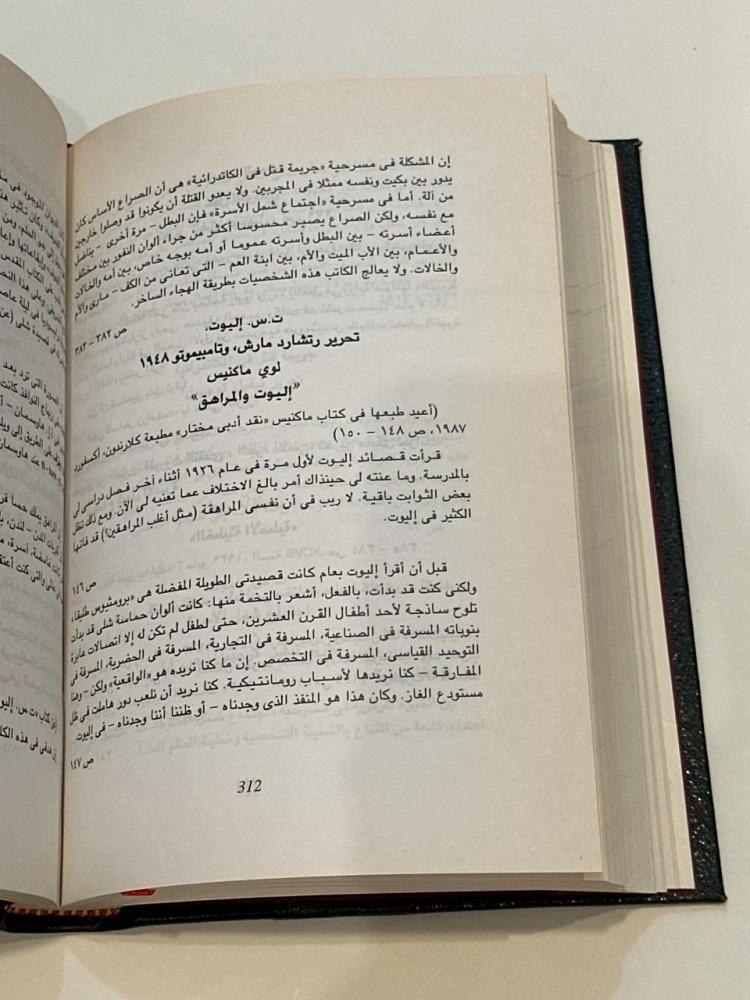 إن المشكلة فى مسرحية «جريمة قتل فى الكاتدرائية» هى أن الصراع الأساس كان
يدور بين بكيت ونفسه ممثلا فى المجربين. ولا يعدو القتلة أن يكونوا قد وصلوا خارجين
من آلة. أما فى مسرحية «اجتماع شمل الأسرة» فإن البطل – مرة أخرى – يناضل
مع نفسه، ولكن الصراع يصير محسوسا أكثر من جراء ألوان النفور بين مختلف
أعضاء أسرته – بين البطل وأسرته عموما أو أمه بوجه خاص، بين أمه والخالات
والأعمام، بين الأب الميت والأم، بين ابنة العم – التى تعانى من الكف – مارى والأم
والخالات. ولا يعالج الكاتب هذه الشخصيات بطريقة الهجاء الساخر.
ص ٣٨٢ – ٣٨٣
ت.س. إليوت.
تحرير رتشارد مارش، وتامبيموتو ١٩٤٨
لوي ماكنيس
"إليوت والمراهق"
(أعيد طبعها فى كتاب ماكنيس «نقد أدبى مختار» مطبعة كلارندون، أكسفورد
١٩٨٧، ص ١٤٨ – ١٥٠)
قرأت قصائد إليوت لأول مرة فى عام ١٩٢٦ أثناء آخر فصل دراسى لى
بالمدرسة. وما عنته لى حينذاك أمر بالغ الاختلاف عما تعنيه لى الآن. ومع ذلك تظل
بعض الثوابت باقية. لا ريب فى أن نفسى المراهقة (مثل أغلب المراهقين؟) قد فاتها
الكثير فى إليوت.
ص ١٤٦
قبل أن أقرأ إليوت بعام كانت قصيدتى الطويلة المفضلة هى «برومثيوس طليقا»
ولكنى كنت قد بدأت، بالفعل، أشعر بالتخمة منها: كانت ألوان حماسة شلى قد بدأت
تلوح ساذجة لأحد أطفال القرن العشرين، حتى لطفل لم تكن له إلا اتصالات عابرة
بنوباته المسرفة فى الصناعية، المسرفة فى التجارية، المسرفة فى الحضرية، المسرفة فى
التوحيد القياسى، المسرفة فى التخصص. إن ما كنا نريده هو «الواقعية» ولكن – وهنا
المفارقة – كنا نريدها لأسباب رومانتيكية. كنا نريد أن نلعب دور هاملت فى ظل
مستودع الغاز. وكان هذا هو المنفذ الذى وجدناه – أو ظننا أننا وجدناه – فى إليوت.
ص ١٤٧
312